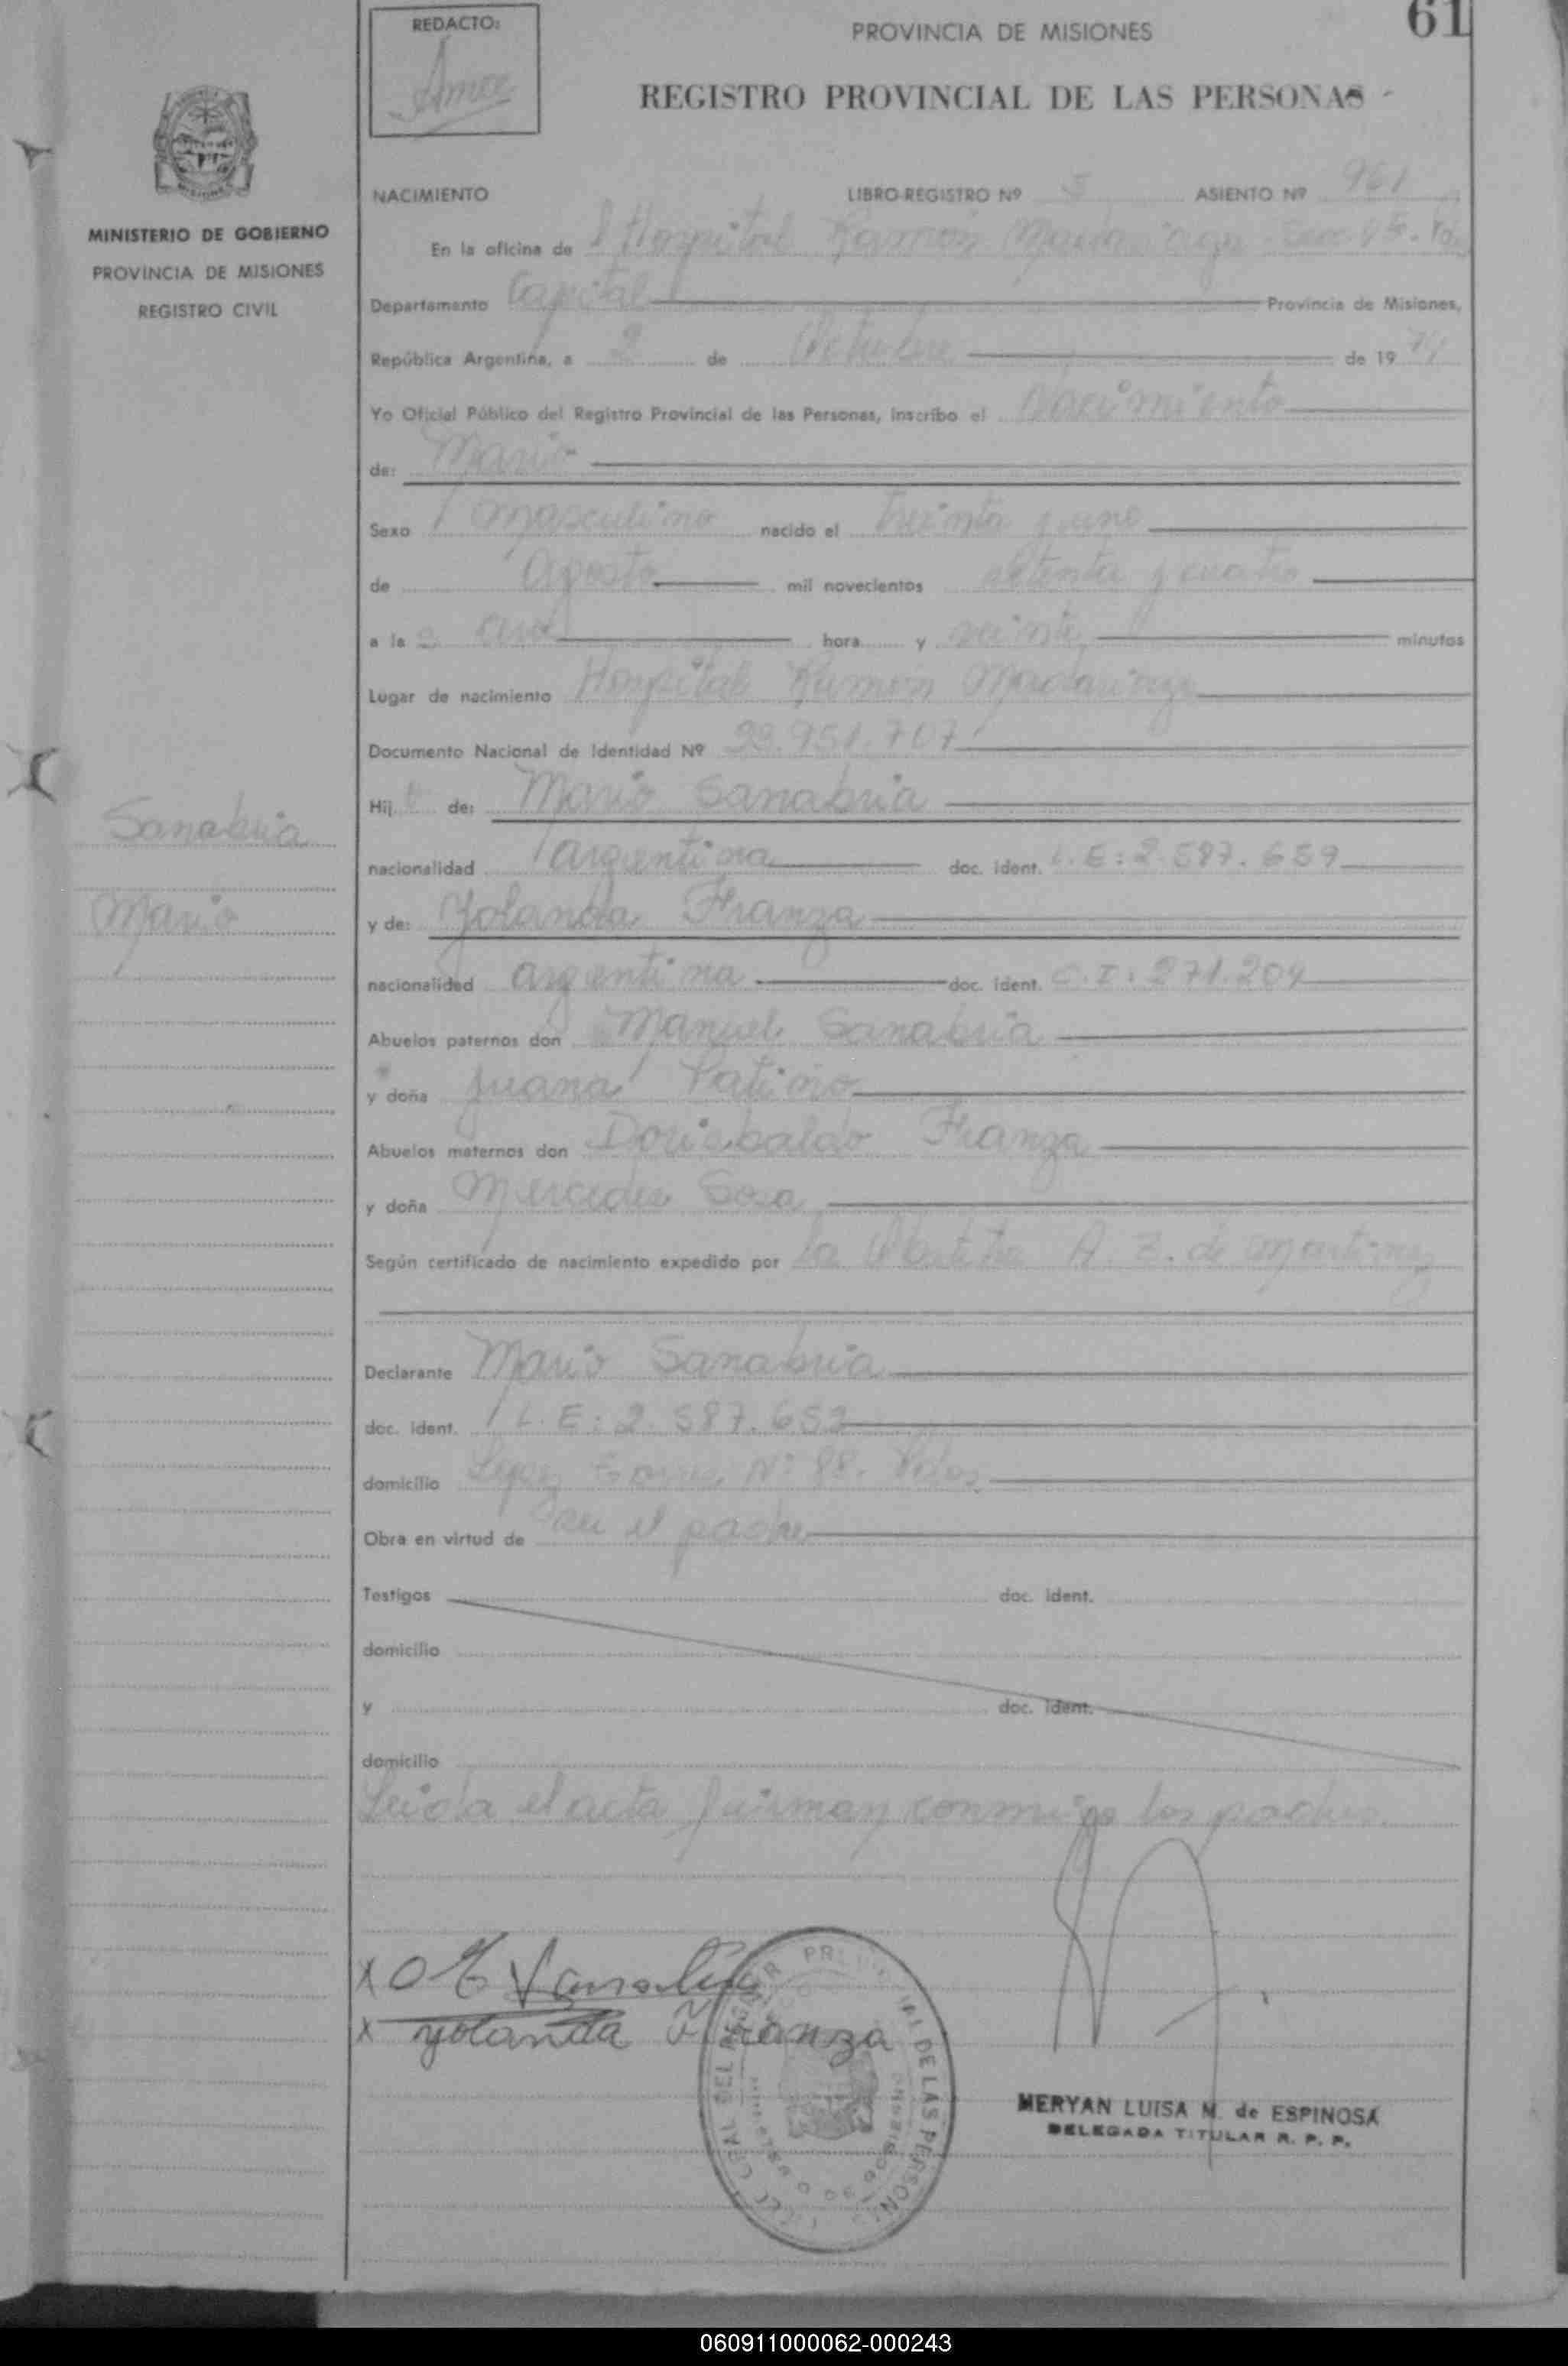 REDACTO:
PROVINCIA DE MISIONES
61
REGISTRO PROVINCIAL DE LAS PERSONAS
MINISTERIO DE GOBIERNO
PROVINCIA DE MISIONES
REGISTRO CIVIL
NACIMIENTO LIBRO-REGISTRO Nº 5 ASIENTO Nº 961
En la oficina de Hospital Ramón Madariaga
Departamento Capital Provincia de Misiones,
República Argentina, a 2 de Octubre de 19 74
Yo Oficial Público del Registro Provincial de las Personas, inscribo el Nacimiento
de: Mario
Sexo Masculino nacido el treinta y uno
de Agosto mil novecientos setenta y cuatro
a la s hora y veinte minutos
Lugar de nacimiento Hospital Ramón Madariaga
Documento Nacional de Identidad Nº 951.707
Hij o de: Mario Sanabria
Sanabria
nacionalidad argentina doc. ident. L.E: 2.587.659
Mario
y de: Yolanda Franza
nacionalidad argentina doc. ident. C.I: 271.209
Abuelos paternos don Manuel Sanabria
y doña Juana Patiño
Abuelos maternos don Franza
y doña Mercedes Sosa
Según certificado de nacimiento expedido por la A. Z. de Martinez
Declarante Mario Sanabria
doc. ident. L.E: 2.587.659
domicilio Lopez Torres Nº 88. Pdas
Obra en virtud de ser el padre
Testigos doc. ident.
domicilio
y doc. ident.
domicilio
Leida el acta firman conmigo los padres.
x Sanabria
x yolanda Franza
DEL REGISTRO PROVINCIAL DE LAS PERSONAS
MERYAN LUISA M. de ESPINOSA
DELEGADA TITULAR R. P. P.
060911000062-000243